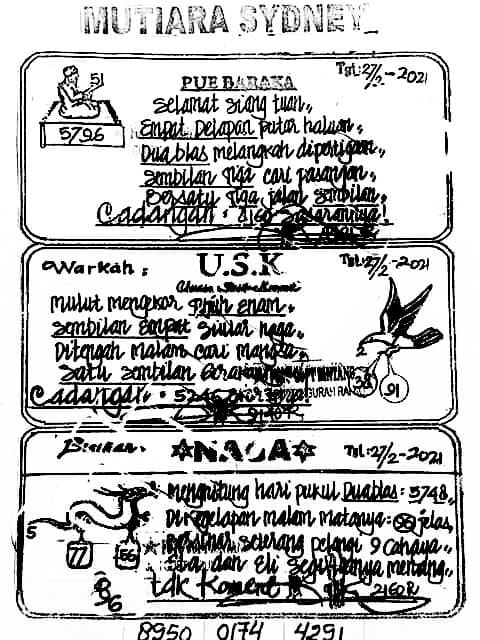 MUTIARA SYDNEY
51
5796
PUE BARAKA
Tgl: 27/2-2021
Selamat siang tuan,,
Empat Delapan putar haluan,
Dua blas melangkah dipertigaan,,
Sembilan tiga cari pasangan,
Bersatu tiga jalan Sembilan,
Cadangan: 2160 Sasarannya!
Warkah:
U.S.K
Tgl: 27/2-2021
Mulut mengekor Pilih Enam,
Sembilan Empat Siular naga,
Ditengah malam cari mangsa,
Satu Sembilan
Cadangan: 5246
2
38
91
NAGA
Tgl: 27/2-2021
Menghitung hari pukul Dua blas: 5748,,
Di Kegelapan malam matanya: 96 jelas,
seterang pelangi 9 Cahaya,,
dan Eli
tdk Koment
2160
5
77
56
8/6
8950 0174 4291